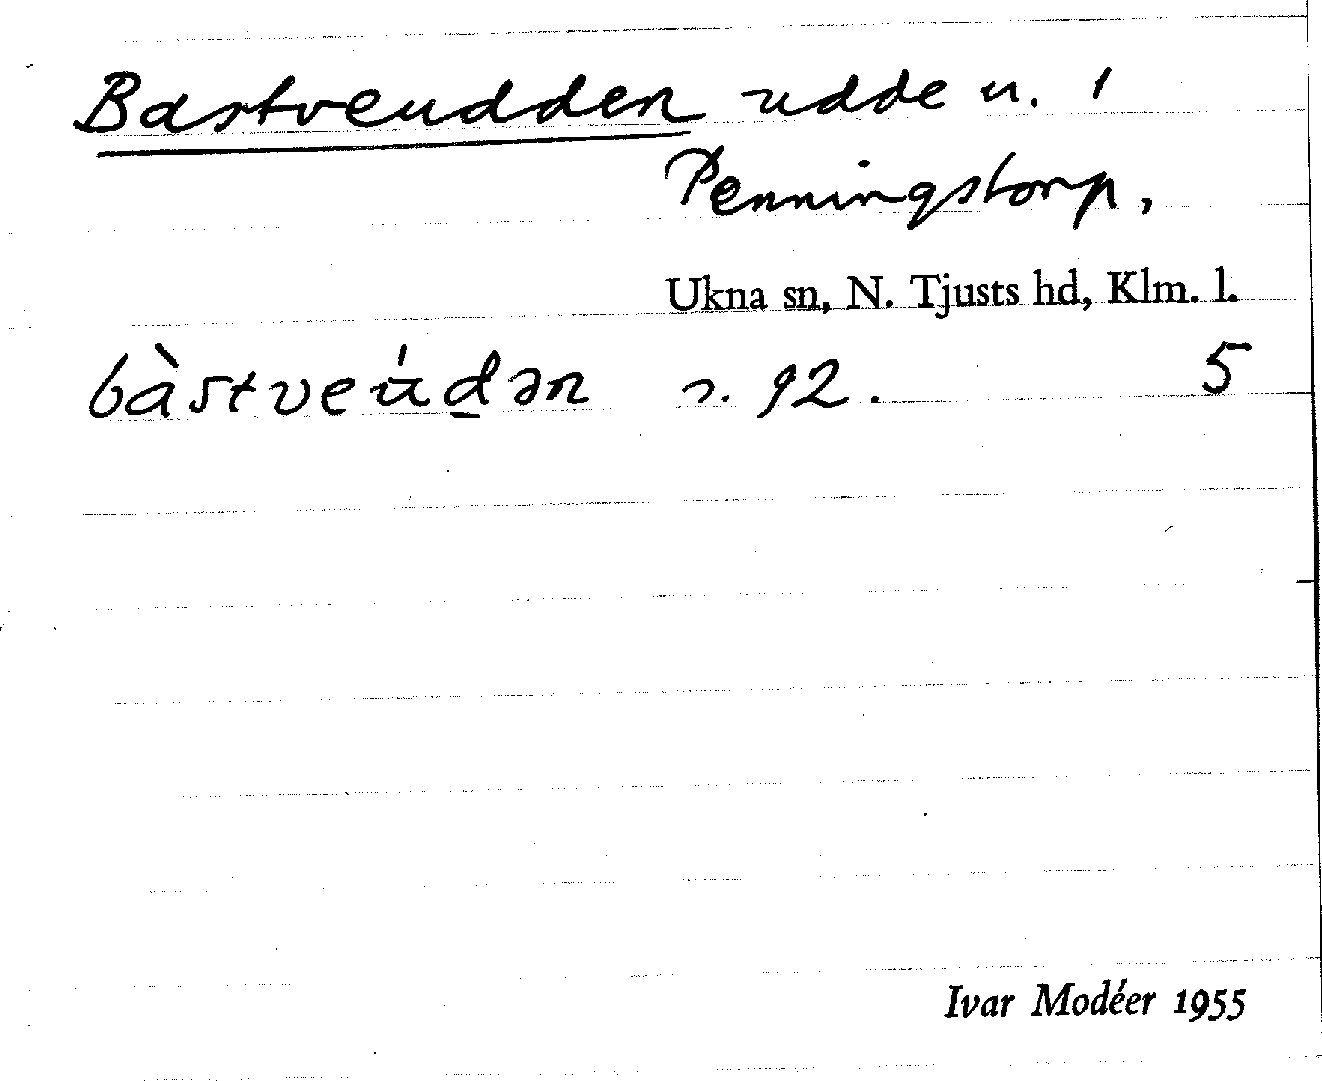 Bastveudden udde n. 1
Penningstorp,
Ukna sn, N. Tjusts hd, Klm. l.
bàstveúdən s. 92. 5
Ivar Modéer 1955